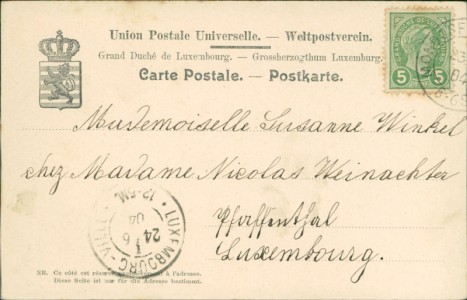 Union Postale Universelle. — Weltpostverein.
Grand Duché de Luxembourg. — Grossherzogthum Luxemburg.
Carte Postale. — Postkarte.
5 5
Mademoiselle Susanne Winkel
chez Madame Nicolas Weinachter
Pfaffenthal
Luxembourg.
LUXEMBOURG-VILLE
24 6
04
12-1M.
NB. Ce côté est réservé à l'adresse.
Diese Seite ist nur für die Adresse bestimmt.